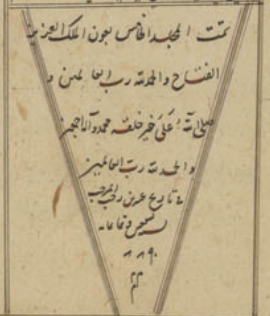 تمت المجلد الخامس بعون الملك العزيز
الفتاح والحمد لله رب العالمين و
صلى الله على خير خلقه محمد وآله اجمعين
والحمد لله رب العالمين
تاريخ
٨٩٠